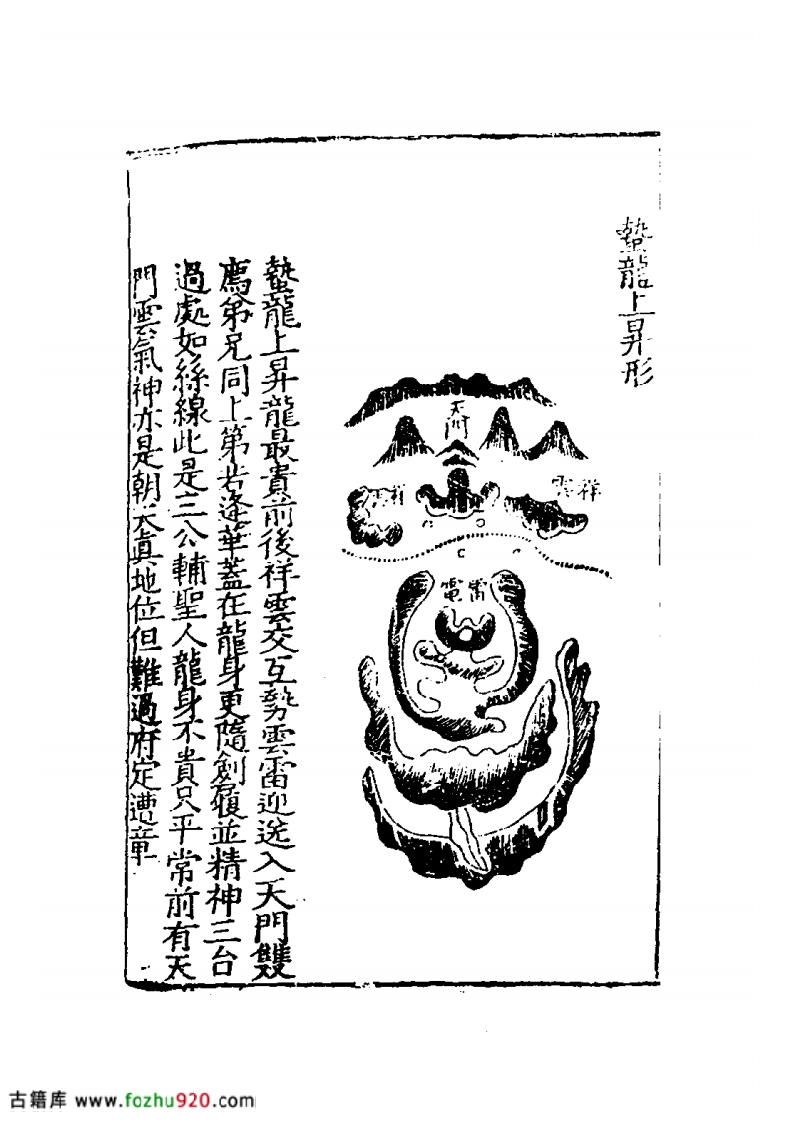 蟄龍上昇形
天門
祥雲
祥雲
雷電
蟄龍上昇龍最貴前後祥雲交互勢雲雷迎送入天門雙
薦弟兄同上第若逢華蓋在龍身更隨劍履並精神三台
過處如絲線此是三公輔聖人龍身不貴只平常前有天
門雲氣神亦是朝天真地位但難過府定遭章
古籍库 www.fozhu920.com